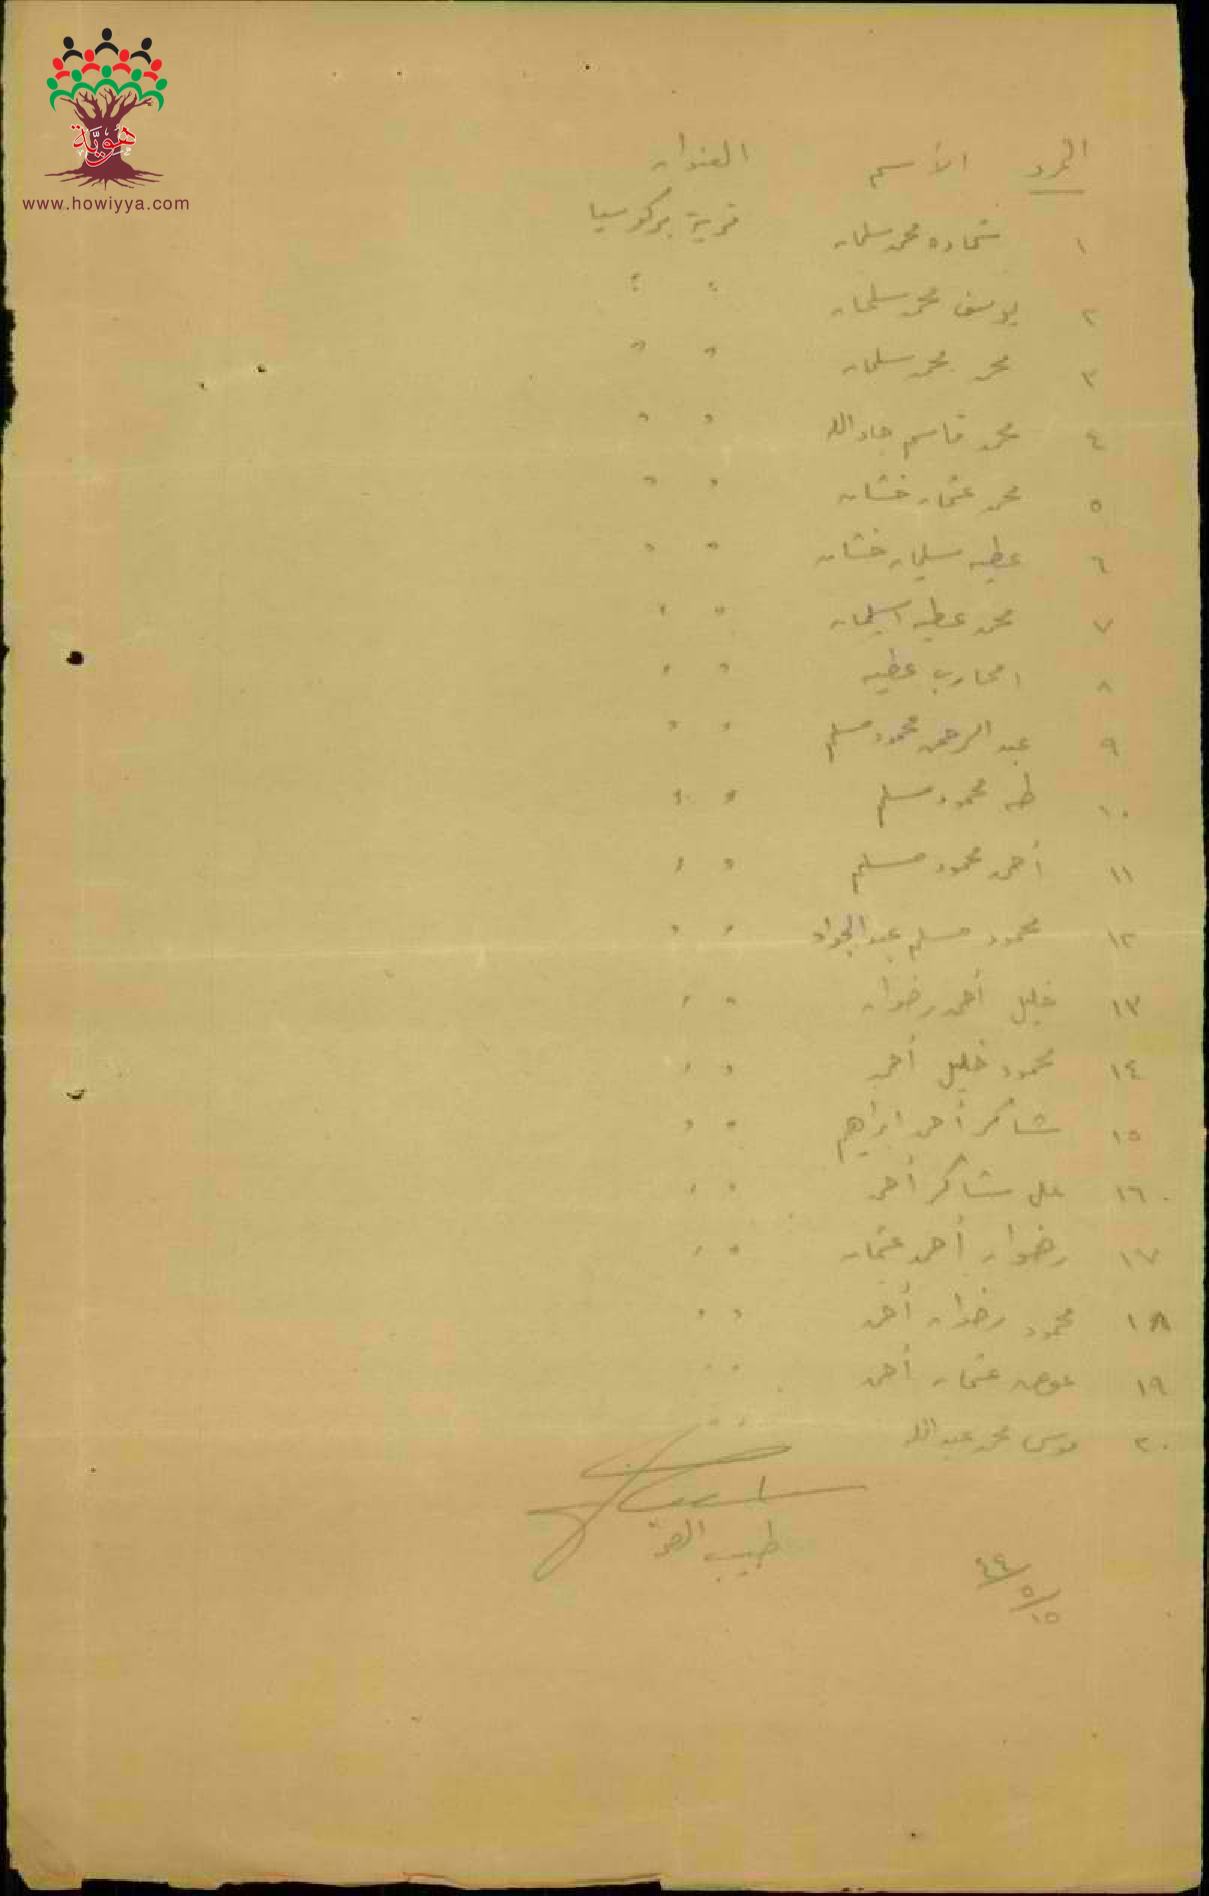 هوية
www.howiyya.com
الاسم العنوان
١ شحاده محمد سلمان قرية بركوسيا
٢ يوسف محمد سلمان " "
٣ محمد محمد سلمان " "
٤ محمد قاسم جاد الله " "
٥ محمد عثمان خشان " "
٦ عطيه سليمان خشان " "
٧ محمد عطيه اسليمان " "
٨ امحارب عطيه " "
٩ عبد الرحمن محمود مسلم " "
١٠ طه محمود مسلم " "
١١ أحمد محمود مسلم " "
١٢ محمود مسلم عبد الجواد " "
١٣ خليل أحمد رضوان " "
١٤ محمود خليل أحمد " "
١٥ شاكر أحمد ابراهيم " "
١٦ علي شاكر أحمد " "
١٧ رضوان أحمد عثمان " "
١٨ محمود رضوان أحمد " "
١٩ عوض عثمان أحمد " "
٢٠ موسى محمد عبد الله " "
طبيب
١٥/٥/٤٤